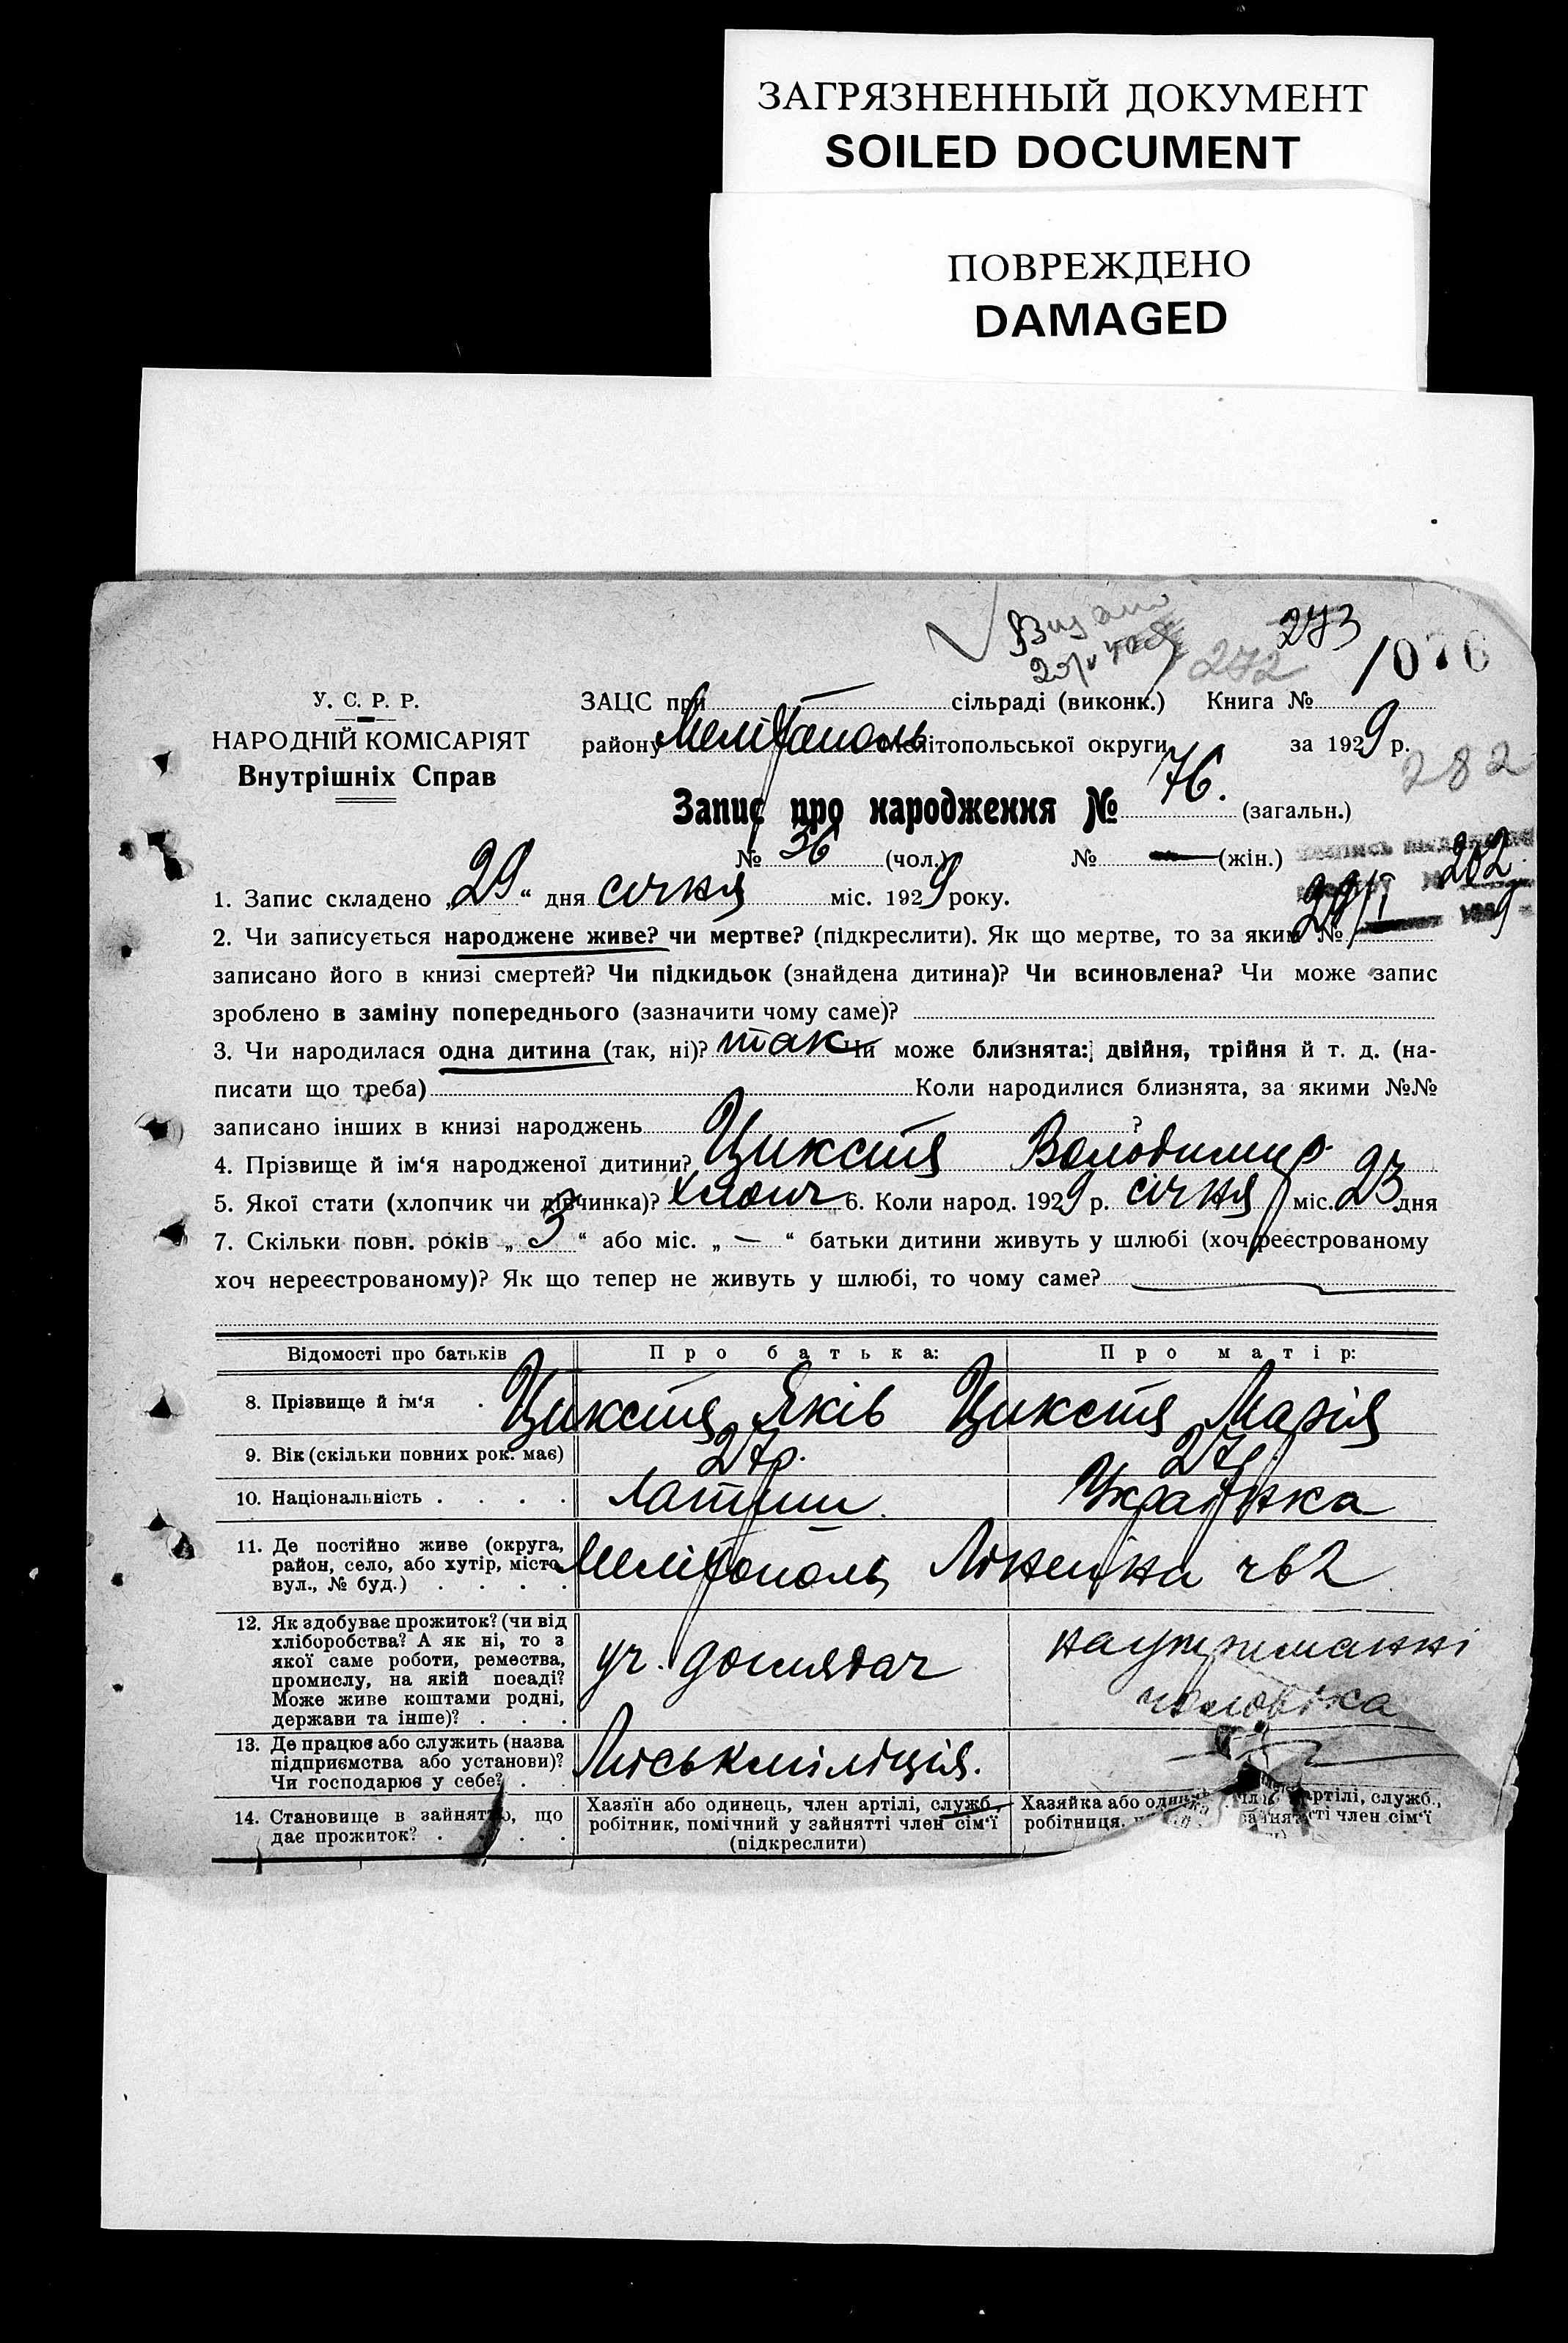 ЗАГРЯЗНЕННЫЙ ДОКУМЕНТ
SOILED DOCUMENT
ПОВРЕЖДЕНО
DAMAGED
273
272
1076
У. С. Р. Р.
НАРОДНІЙ КОМІСАРІЯТ
Внутрішніх Справ
ЗАЦС при — сільраді (виконк.) Книга №
району Мелітополь Мелітопольської округи за 1929 р.
282
Запис про народження № 76. (загальн.)
№ 36 (чол.) № — (жін.)
282
1. Запис складено „29“ дня січня міс. 1929 року.
2. Чи записується народжене живе? чи мертве? (підкреслити). Як що мертве, то за яким №
записано його в книзі смертей? Чи підкидьок (знайдена дитина)? Чи всиновлена? Чи може запис
зроблено в заміну попереднього (зазначити чому саме)?
3. Чи народилася одна дитина (так, ні)? так Чи може близнята: двійня, трійня й т. д. (на-
писати що треба) Коли народилися близнята, за якими №№
записано інших в книзі народжень ?
4. Прізвище й ім‘я народженої дитини? Цикстя Володимир
5. Якої стати (хлопчик чи дівчинка)? хлопч 6. Коли народ. 1929 р. січня міс. 23 дня
7. Скільки повн. років „ 3 “ або міс. „ — “ батьки дитини живуть у шлюбі (хоч реєстрованому
хоч нереєстрованому)? Як що тепер не живуть у шлюбі, то чому саме? —
Відомості про батьків Про батька: Про матір:
8. Прізвище й ім‘я . Цикстя Яків Цикстя Марія
9. Вік (скільки повних рок. має) 27р. 27р
10. Національність . . . . Латиш. Українка
11. Де постійно живе (округа,
район, село, або хутір, місто
вул., № буд.) . . . . Мелітополь
12. Як здобуває прожиток? (чи від
хліборобства? А як ні, то з
якої саме роботи, ремества,
промислу, на якій посаді?
Може живе коштами родні,
держави та інше)? . . .
уч. доглядач
на утриманні
чоловіка
13. Де працює або служить (назва
підприємства або установи)?
Чи господарює у себе? . .
Міськміліція. —
14. Становище в зайнятню, що
дає прожиток? . . . . .
Хазяїн або одинець, член артілі, служб.,
робітник, помічний у зайнятті член сім‘ї
(підкреслити)
Хазяйка або артілі, служб.,
робітниця. член сім‘ї